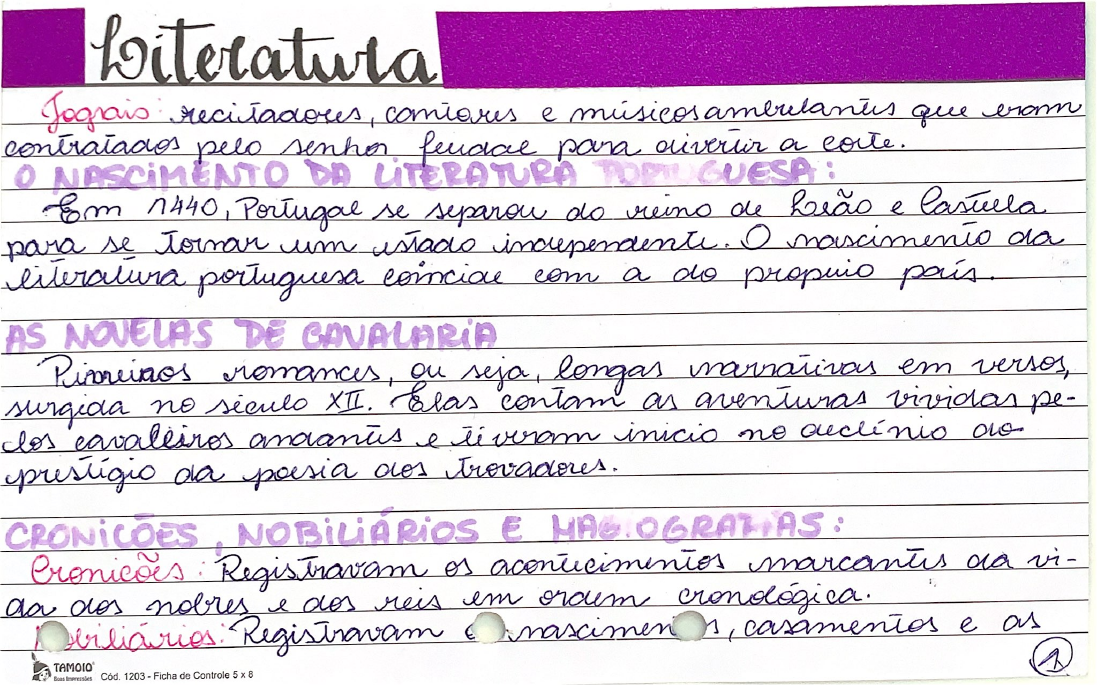 Literatura
Jograis: recitadores, cantores e músicos ambulantes que eram
contratados pelo senhor feudal para divertir a corte.
O NASCIMENTO DA LITERATURA PORTUGUESA:
Em 1140, Portugal se separou do reino de Leão e Castela
para se tornar um estado independente. O nascimento da
literatura portuguesa coincide com a do propuio país.
AS NOVELAS DE CAVALARIA
Primeiros romances, ou seja, longas narrativas em versos,
surgida no século XII. Elas contam as aventuras vividas pe-
los cavaleiros andantes e tiveram inicio no declínio do
prestígio da poesia dos trovadores.
CRONICÕES, NOBILIÁRIOS E HAGIOGRAFIAS:
Cronicões: Registravam os acontecimentos marcantes da vi-
da dos nobres e dos reis em ordem cronológica.
Nobiliários: Registravam os nascimentos, casamentos e as
1
TAMOIO
Boas Impressões
Cód. 1203 - Ficha de Controle 5 x 8